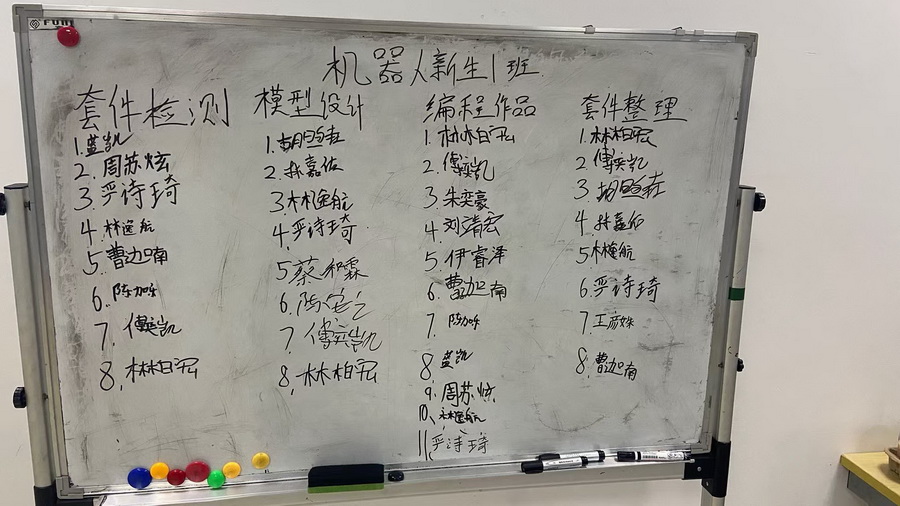 机器人新生1班
套件检测
1.蓝凯
2.周苏炫
3.严诗琦
4.林逸航
5.曹边南
6.陈加乐
7.傅奕凯
8.林柏宏
模型设计
1.
2.林嘉佑
3.林逸航
4.严诗琦
5.蔡 霖
6.陈
7.傅奕凯
8.林柏宏
编程作品
1.林柏宏
2.傅奕凯
3.朱奕豪
4.刘靖宏
5.伊睿泽
6.曹边南
7.陈加乐
8.蓝凯
9.周苏炫
10.林逸航
11严诗琦
套件整理
1.林柏宏
2.傅奕凯
3.
4.林嘉佑
5林逸航
6.严诗琦
7.王彦姝
8.曹边南